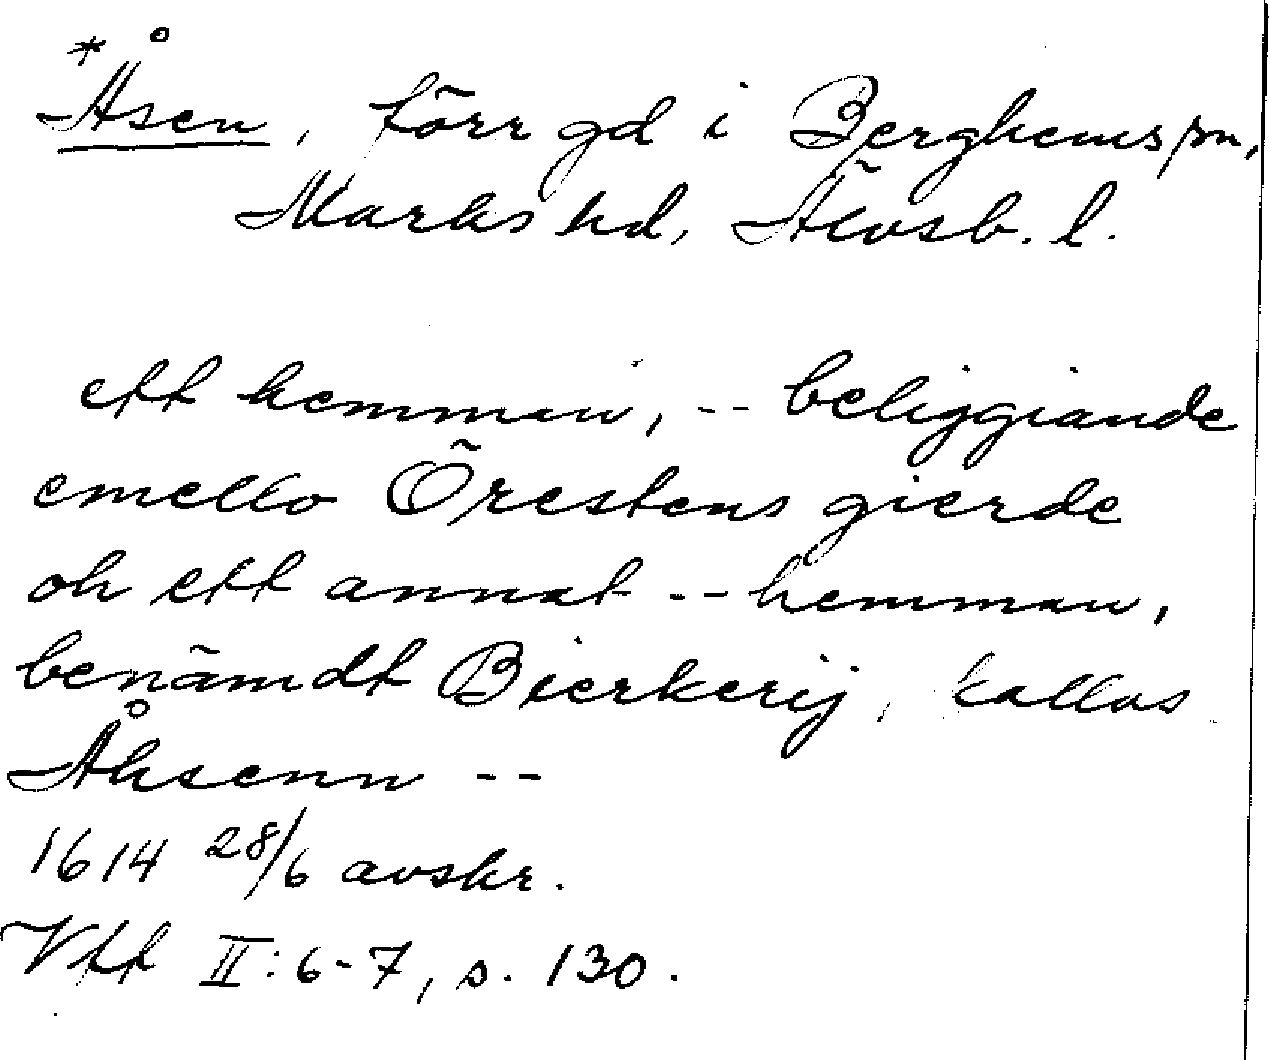 *Åsen, förr gd i Berghems sn,
Marks hd, Älvsb. l.
ett hemman, -- beliggiande
emello Örestens gierde
oh ett annat -- hemman,
benämdt Bierkerij, kallas
Åhsenn --
1614 28/6 avskr.
Vft II: 6-7, s. 130.